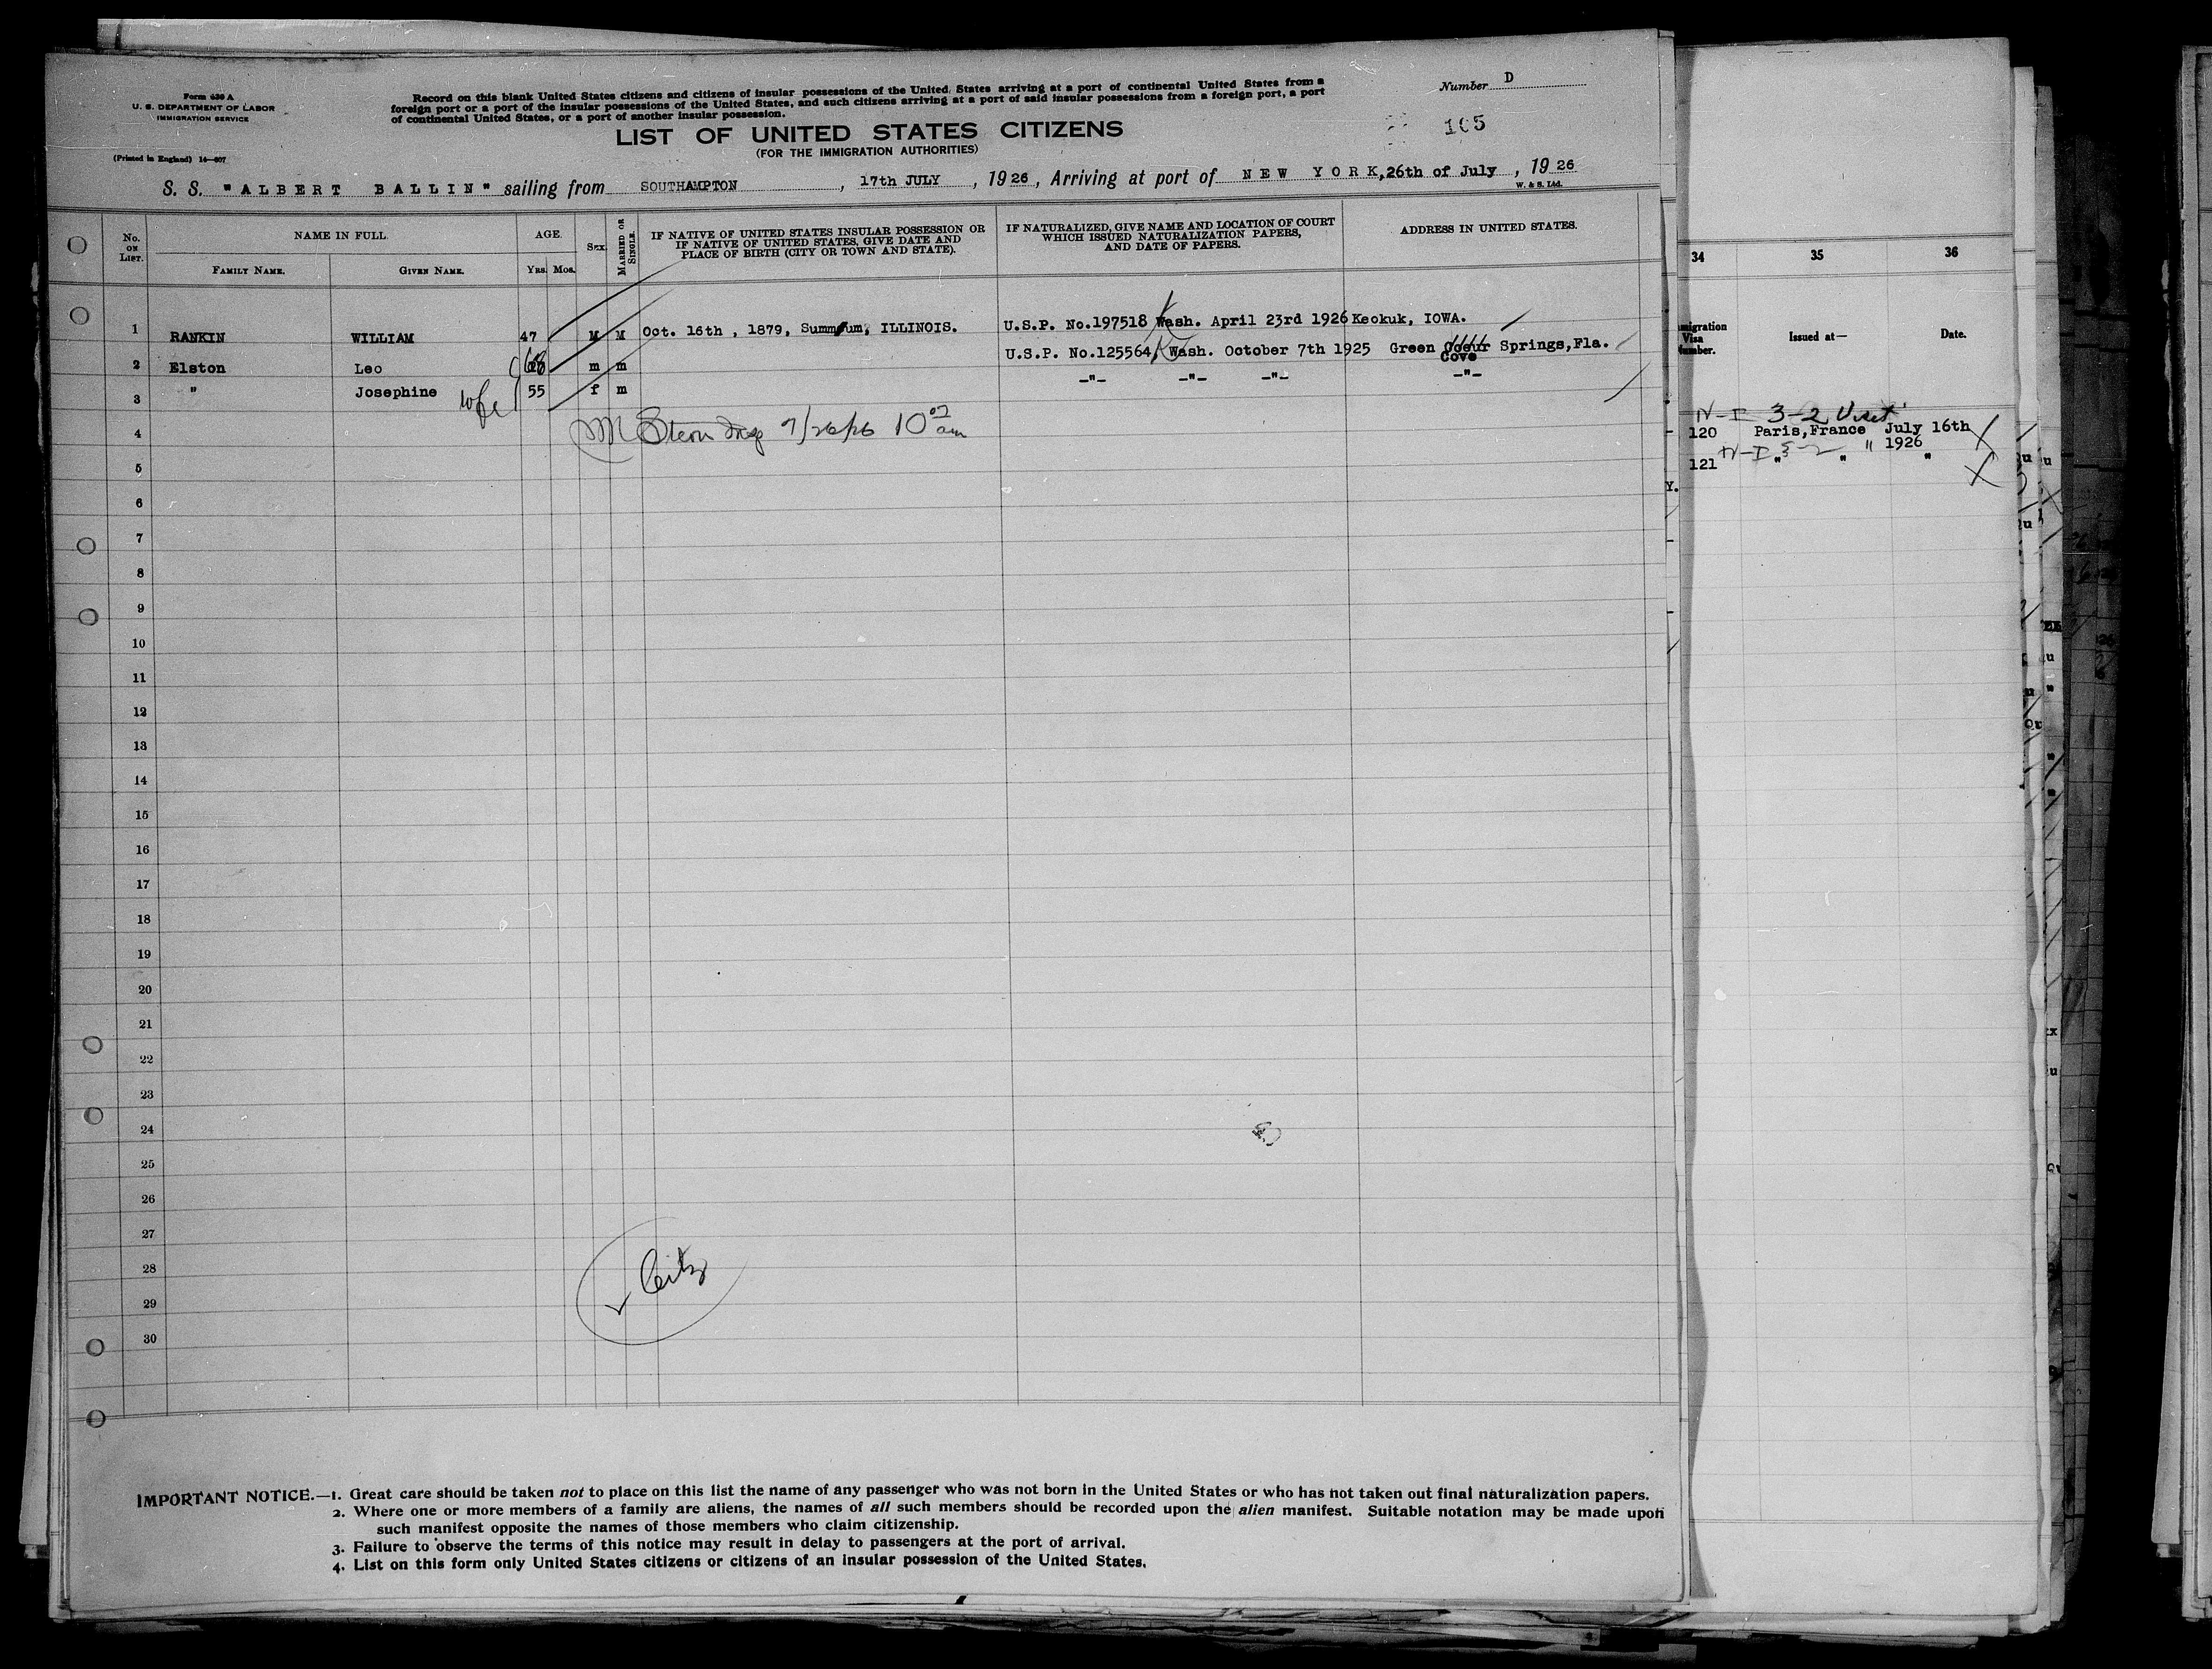 Form 630 A
U. S. DEPARTMENT OF LABOR
IMMIGRATION SERVICE
(Printed in England) 14—807
Record on this blank United States citizens and citizens of insular possessions of the United States arriving at a port of continental United States from a
foreign port or a port of the insular possessions of the United States, and such citizens arriving at a port of said insular possessions from a foreign port, a port
of continental United States, or a port of another insular possession.
Number D
105
LIST OF UNITED STATES CITIZENS
(FOR THE IMMIGRATION AUTHORITIES)
S. S. "ALBERT BALLIN" sailing from SOUTHAMPTON, 17th JULY, 1926, Arriving at port of NEW YORK, 26th of July, 1926
W. & S. Ltd.
No. on List. NAME IN FULL. AGE. Sex. Married or Single. IF NATIVE OF UNITED STATES INSULAR POSSESSION OR IF NATIVE OF UNITED STATES, GIVE DATE AND PLACE OF BIRTH (CITY OR TOWN AND STATE). IF NATURALIZED, GIVE NAME AND LOCATION OF COURT WHICH ISSUED NATURALIZATION PAPERS, AND DATE OF PAPERS. ADDRESS IN UNITED STATES.
Family Name. Given Name. Yrs. Mos.
1 RANKIN WILLIAM 47 M M Oct. 16th, 1879, Summum, ILLINOIS. U.S.P. No.197518 Wash. April 23rd 1926 Keokuk, IOWA.
2 Elston Leo 68 m m U.S.P. No.125564, Wash. October 7th 1925 Green Cove Springs, Fla.
3 " Josephine wife 55 f m -"- -"- -"- -"-
4 7/26/26 10 am
5
6
7
8
9
10
11
12
13
14
15
16
17
18
19
20
21
22
23
24
25
26
27
28
29
30
Citz
IMPORTANT NOTICE.—1. Great care should be taken not to place on this list the name of any passenger who was not born in the United States or who has not taken out final naturalization papers.
2. Where one or more members of a family are aliens, the names of all such members should be recorded upon the alien manifest. Suitable notation may be made upon
such manifest opposite the names of those members who claim citizenship.
3. Failure to observe the terms of this notice may result in delay to passengers at the port of arrival.
4. List on this form only United States citizens or citizens of an insular possession of the United States.
34 35 36
migration Visa Number. Issued at— Date.
3-2
120 Paris, France July 16th
" 1926
121 " " "